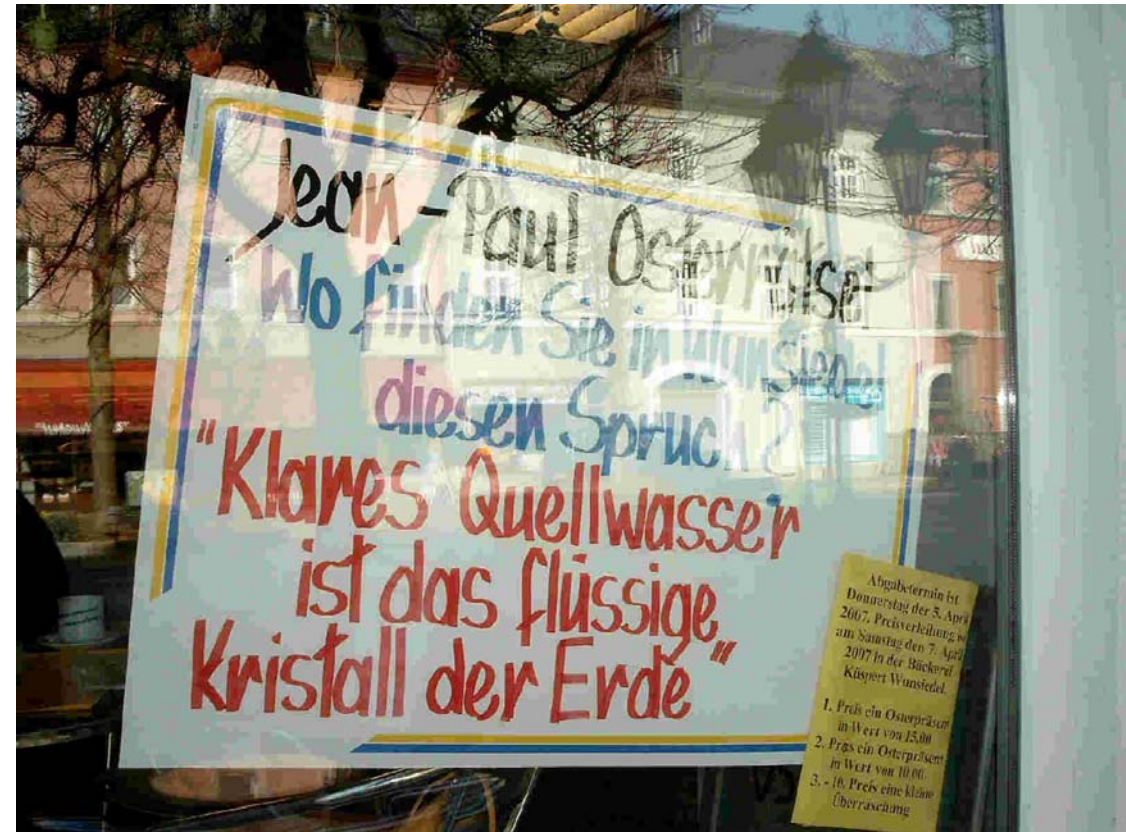 Jean-Paul Osterrätsel
Wo finden Sie in Wunsiedel
diesen Spruch?
"Klares Quellwasser
ist das flüssige
Kristall der Erde"
Abgabetermin ist
Donnerstag der 5. April
2007. Preisverleihung ist
am Samstag den 7. April
2007 in der Bäckerei
Küspert Wunsiedel.
1. Preis ein Osterpräsent
in Wert von 15,00
2. Preis ein Osterpräsent
in Wert von 10,00
3. - 10. Preis eine kleine
Überraschung